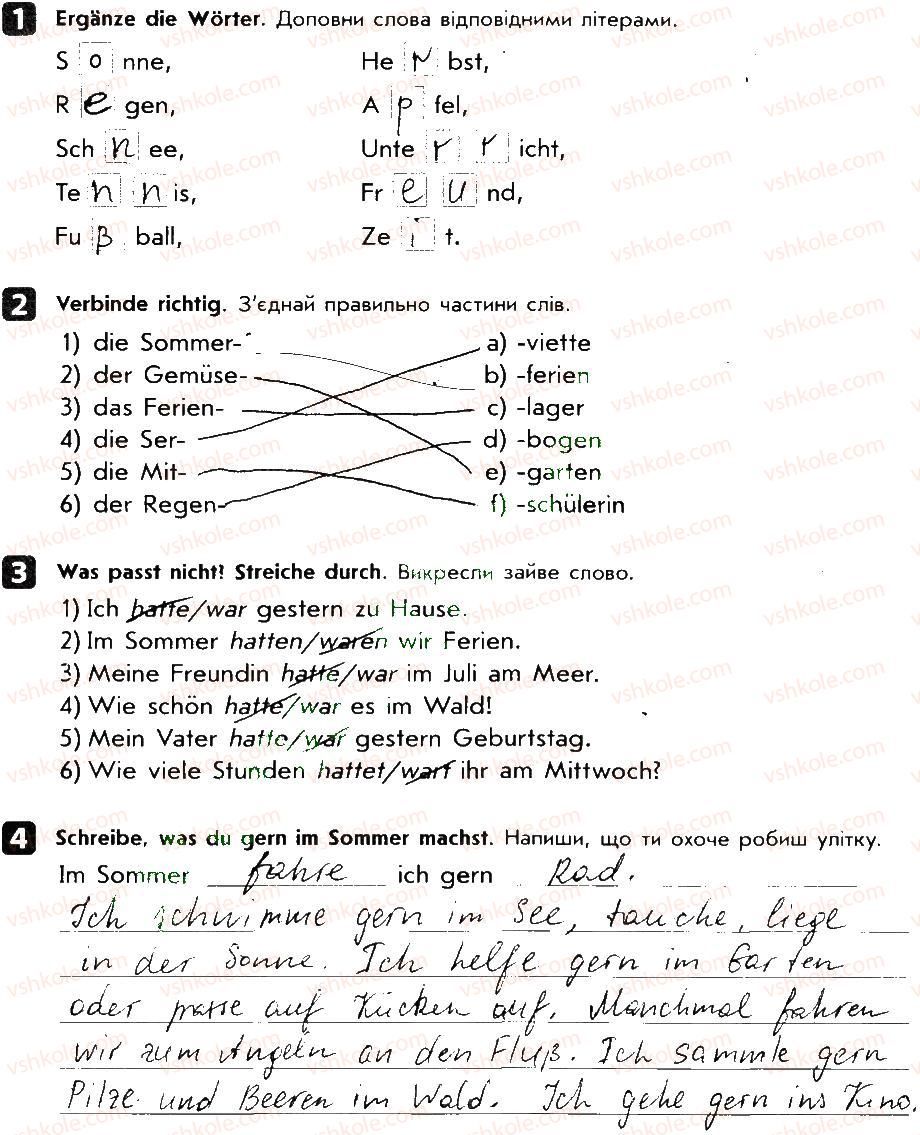 1 Ergänze die Wörter. Доповни слова відповідними літерами.
Sonne, Herbst,
Regen, Apfel,
Schnee, Unterricht,
Tennis, Freund,
Fußball, Zeit.
2 Verbinde richtig. З'єднай правильно частини слів.
1) die Sommer- a) -viette
2) der Gemüse- b) -ferien
3) das Ferien- c) -lager
4) die Ser- d) -bogen
5) die Mit- e) -garten
6) der Regen- f) -schülerin
3 Was passt nicht? Streiche durch. Викресли зайве слово.
1) Ich hatte/war gestern zu Hause.
2) Im Sommer hatten/waren wir Ferien.
3) Meine Freundin hatte/war im Juli am Meer.
4) Wie schön hatte/war es im Wald!
5) Mein Vater hatte/war gestern Geburtstag.
6) Wie viele Stunden hattet/wart ihr am Mittwoch?
4 Schreibe, was du gern im Sommer machst. Напиши, що ти охоче робиш улітку.
Im Sommer fahre ich gern Rad.
Ich schwimme gern im See, tauche, liege
in der Sonne. Ich helfe gern im Garten
oder passe auf Kücken auf. Manchmal fahren
wir zum Angeln an den Fluß. Ich sammle gern
Pilze und Beeren im Wald. Ich gehe gern ins Kino.